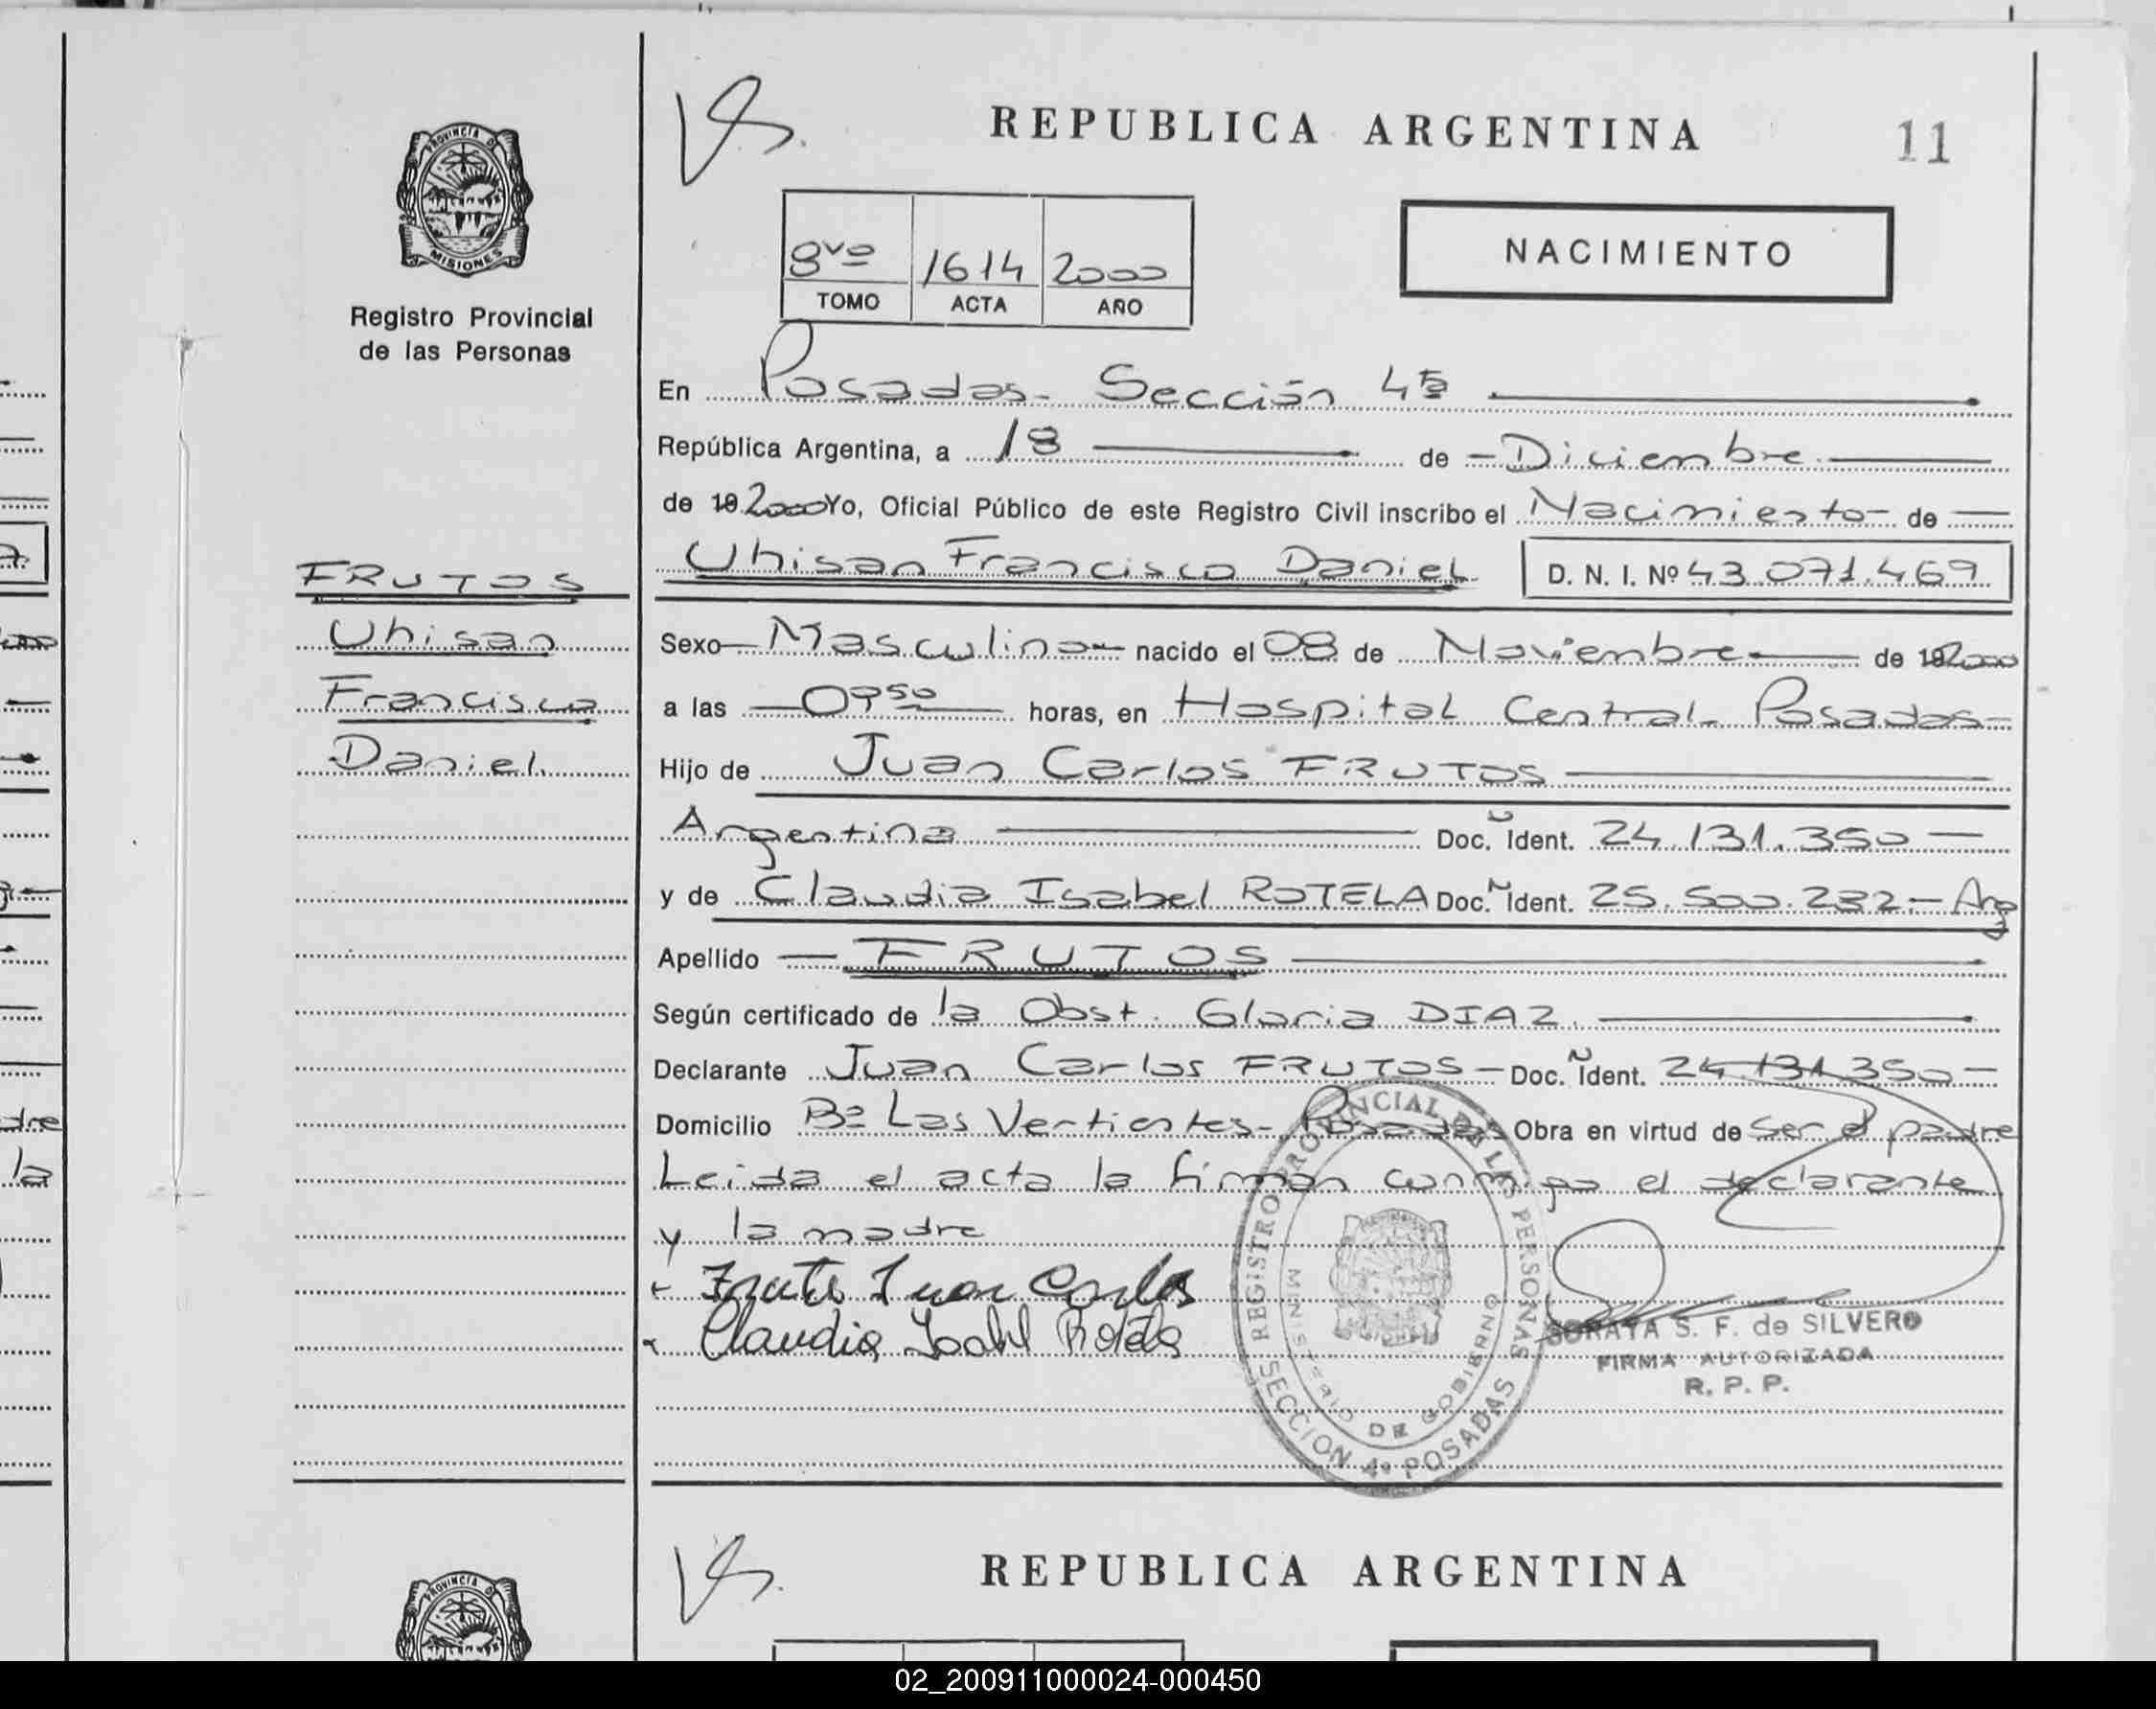 REPUBLICA ARGENTINA
11
PROVINCIA DE
MISIONES
Registro Provincial
de las Personas
8vo 1614 2000
TOMO ACTA AÑO
NACIMIENTO
En Posadas - Sección 4ta
República Argentina, a 18 de - Diciembre
de 19 2000 Yo, Oficial Público de este Registro Civil inscribo el Nacimiento - de
Uhisan Francisco Daniel D. N. I. Nº 43.071.469
FRUTOS
Uhisan
Francisco
Daniel
Sexo - Masculino - nacido el 08 de Noviembre de 19 2000
a las 07 50 horas, en Hospital Central Posadas -
Hijo de Juan Carlos FRUTOS
Argentina Doc. Ident. 24.131.350 -
y de Claudia Isabel ROTELA Doc. Ident. 25.500.232 - Arg
Apellido - FRUTOS
Según certificado de la Obst. Gloria DIAZ.
Declarante Juan Carlos FRUTOS - Doc. Ident. 24.131.350 -
Domicilio Bº Las Vertientes - Posadas Obra en virtud de Ser el padre
Leida el acta la firman conmigo el declarante
y la madre
Frutos Juan Carlos
Claudia Isabel Rotela
REGISTRO PROVINCIAL DE LAS PERSONAS
MINISTERIO DE GOBIERNO
SECCION 4ª POSADAS
SORAYA S. F. de SILVERO
FIRMA AUTORIZADA
R. P. P.
REPUBLICA ARGENTINA
PROVINCIA DE
02_200911000024-000450